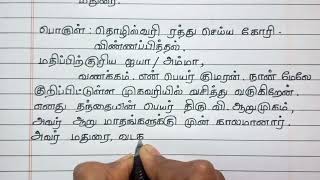 மதுரை.
பொருள் : தொழில்வரி ரத்து செய்ய கோரி
விண்ணப்பித்தல்.
மதிப்பிற்குரிய ஐயா / அம்மா,
வணக்கம். என் பெயர் குமரன். நான் மேலே
குறிப்பிட்டுள்ள முகவரியில் வசித்து வருகிறேன்.
எனது தந்தையின் பெயர் திரு வி. ஆறுமுகம்,
அவர் ஆறு மாதங்களுக்கு முன் காலமானார்.
அவர் மதுரை, வடக